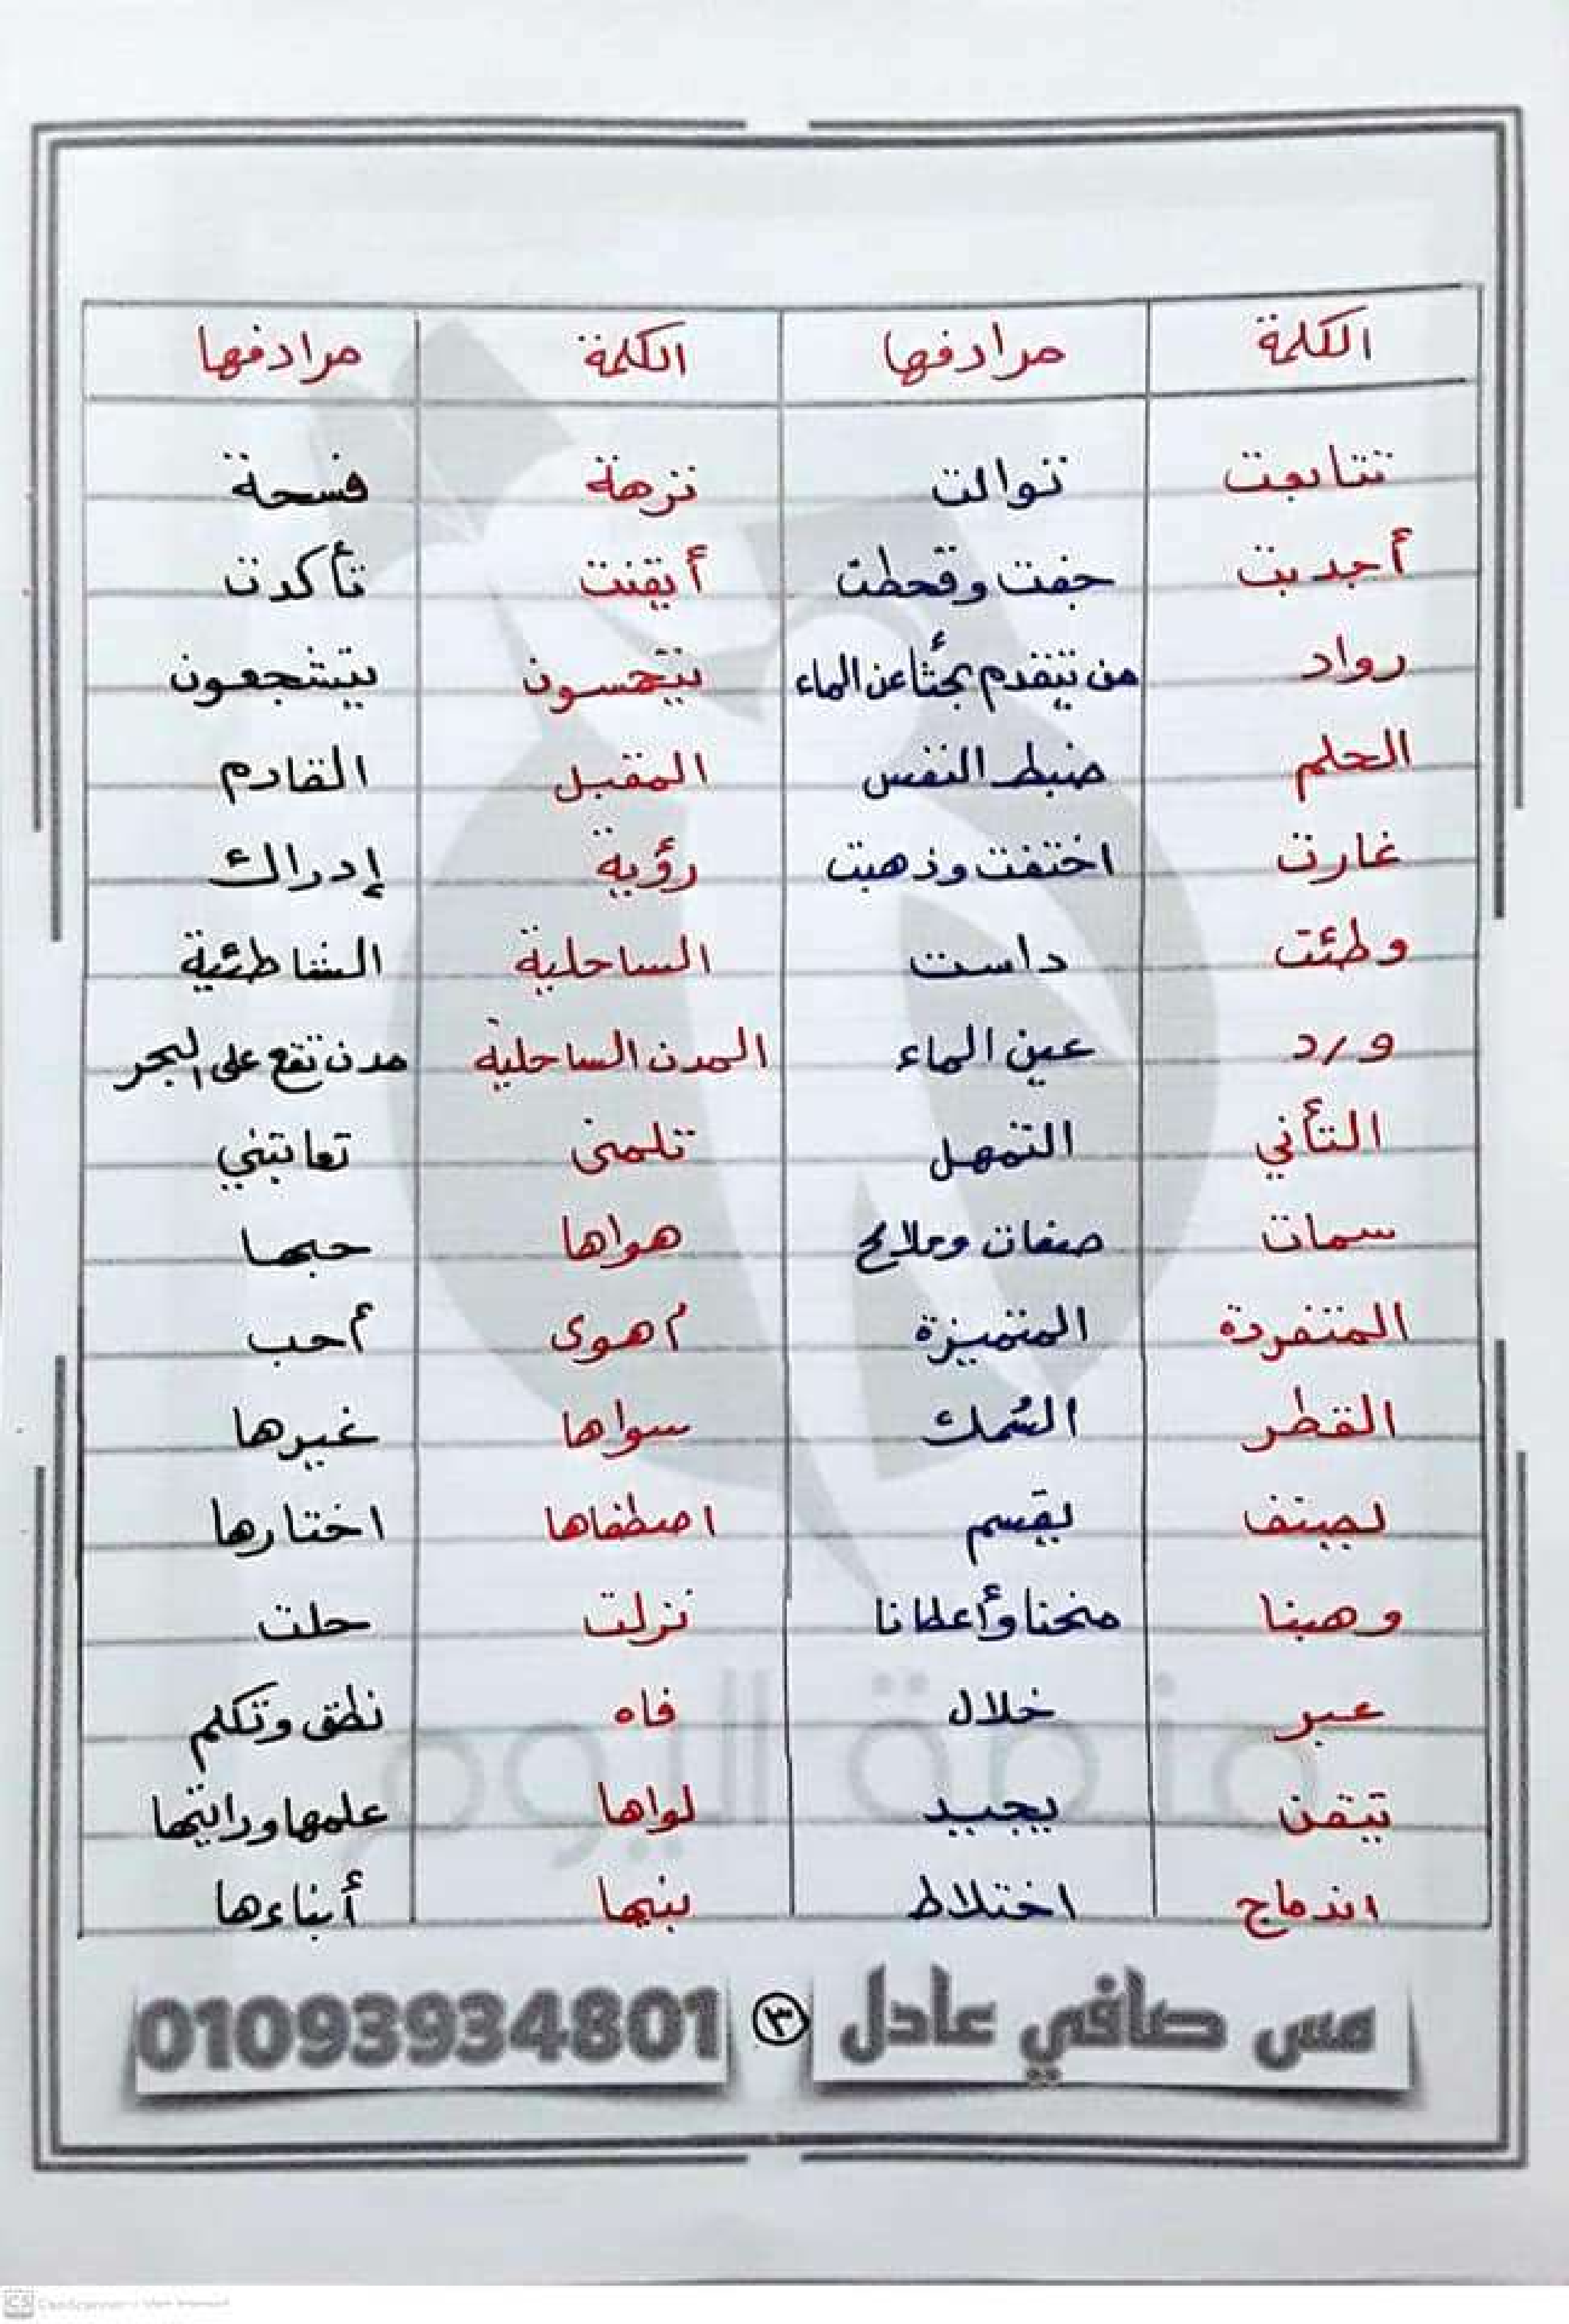 الكلمة مرادفها الكلمة مرادفها
تتابعت توالت نزهة فسحة
أجدبت جفت وقحطت أيقنت تأكدت
رواد من يتقدم بحثًا عن الماء يتحمسون يتشجعون
الحلم ضبط النفس المقبل القادم
غارت اختفت وذهبت رؤية إدراك
وطئت داست الساحلية الشاطئية
ورد عين الماء المدن الساحلية مدن تقع على البحر
التأني التمهل تلمنى تعاتبني
سمات صفات وملامح هواها حبها
المتفردة المتميزة أهوى أحب
القطر السُمك سواها غيرها
يصنف يقسم اصطفاها اختارها
وهبنا منحنا وأعطانا نزلت حلت
عبر خلال فاه نطق وتكلم
يتقن يجيد لواها علمها ورايتها
اندماج اختلاط بنيها أبناءها
منصة اليوم
مس صافي عادل ٣ 01093934801